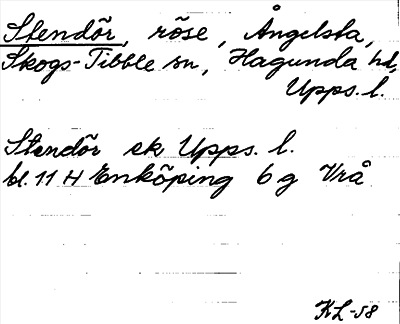 Stendör, röse, Ångelsta,
Skogs-Tibble sn, Hagunda hd,
Upps. l.
Stendör ek Upps. l.
bl. 11 H Enköping 6 g Vrå
KL-58